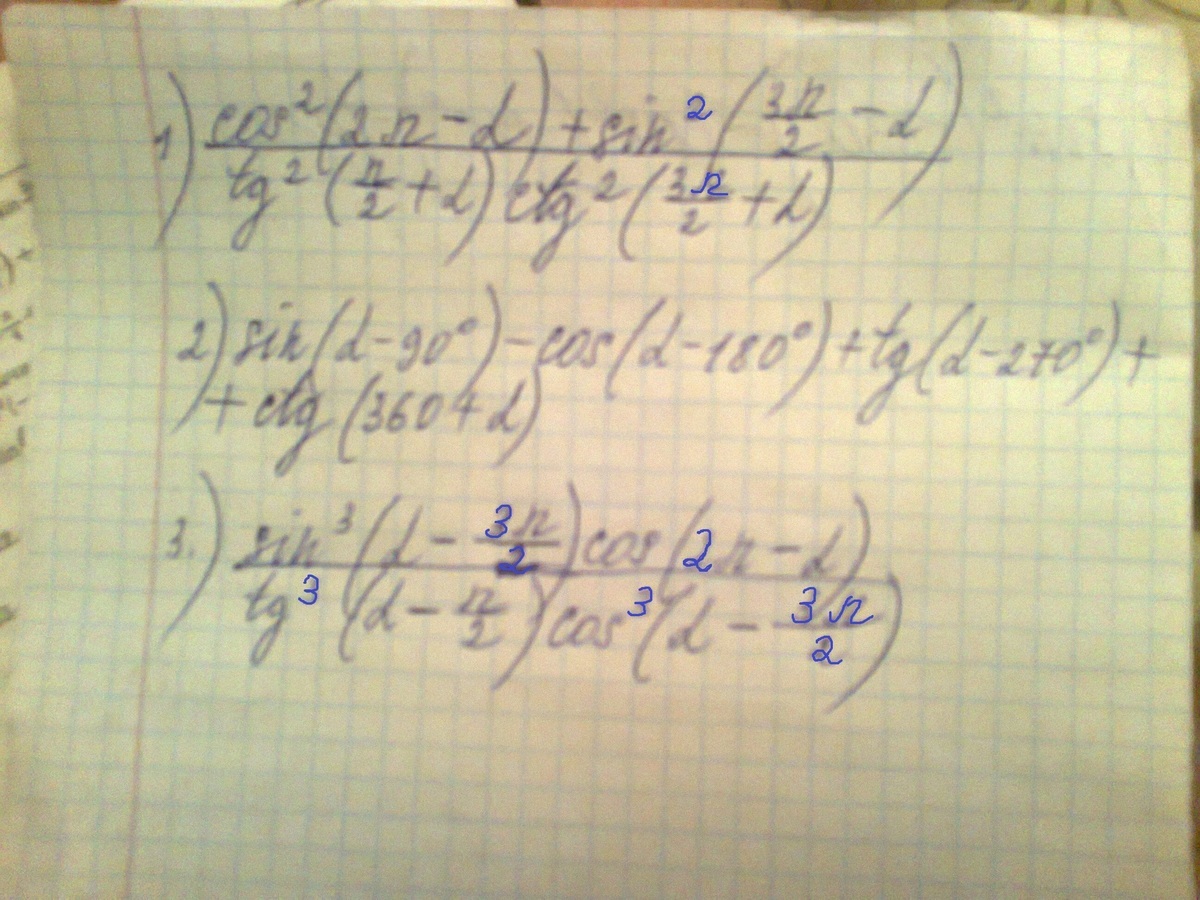 1) cos²(2π-α)+sin²(3π/2-α)
tg²(π/2+α) ctg²(3π/2+α)
2) sin(α-90°)-cos(α-180°)+tg(α-270°)+
+ctg(360+α)
3.) sin³(α-3π/2)cos(2π-α)
tg³(α-π/2)cos³(α-3π/2)